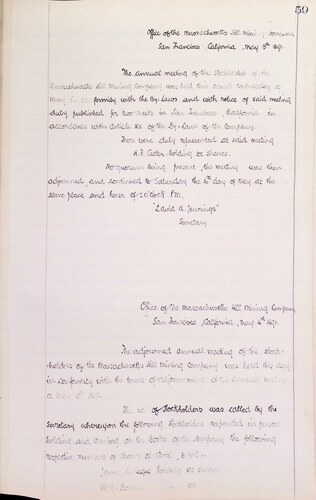 59
Office of the Massachusetts Hill Mining Company
San Francisco California, May 5th 1891.
The annual meeting of the Stockholders of the
Massachusetts Hill Mining Company was held this second Wednesday of
May in conformity with the By-Laws and with notice of said meeting
duly published for two weeks in San Francisco, California in
accordance with Article XII of the By-Laws of the Company.
There were duly represented at said meeting
H. J. Cutter holding 50 shares.
No quorum being present, the meeting was then
adjourned, and continued to Saturday the 16th day of May at the
same place and hour of 2 o'clock P.M.
"David A. Jennings"
Secretary
Office of the Massachusetts Hill Mining Company
San Francisco, California, May 16th 1891.
The adjourned annual meeting of the Stock-
holders of the Massachusetts Hill Mining Company was held this day
in conformity with the terms of adjournment of the annual meeting
of May 1891.
The roll of Stockholders was called by the
Secretary whereupon the following Stockholders responded in person
holding and owning on the books of the Company the following
respective numbers of shares of stock